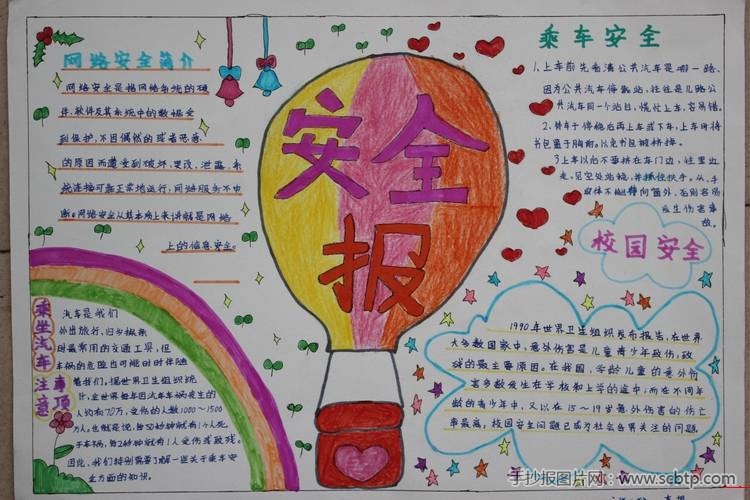 网络安全简介
网络安全是指网络系统的硬
件、软件及其系统中的数据受
到保护，不因偶然的或者恶意
的原因而遭受到破坏、更改、泄露，系
统连接可靠正常地运行，网络服务不中
断。网络安全从其本质上来讲就是网络
上的信息安全。
安全
报
乘车安全
1、上车前先看清公共汽车是哪一路，
因为公共汽车停靠站，往往是几路公
共汽车同一个站台，慌忙上车，容易错。
2、待车子停稳后再上车或下车，上车时将
书包置于胸前，以免书包被挤掉。
3上车以后不要挤在车门边，往里边
走，见空处站稳，并抓住扶手。头、手
身体不能伸向窗外，否则容易
发生伤害事
故。
校园安全
1990年世界卫生组织发布报告，在世界
大多数国家中，意外伤害是儿童青少年致伤、致
残的最主要原因。在我国，学龄儿童的意外伤
害多数发生在学校和上学的途中；而在不同年
龄的青少年中，又以在15～19岁意外伤害的伤亡
事最高，校园安全问题已成为社会各界关注的问题
乘坐汽车注意
事项
汽车是我们
外出旅行，归乡探亲
时最常用的交通工具，但
车祸的危险也可能时时伴随
着我们，据世界卫生组织统
计，全世界每年因汽车车祸丧生的
人约有70万，受伤的人数1000～1500
万人。也就是说，每50秒钟就有1个人死
于车祸，每2秒钟就有1人受伤或致残。
因此，我们特别需要了解一些关于乘车安
全方面的知识。
手抄报图片网：www.scbtp.com